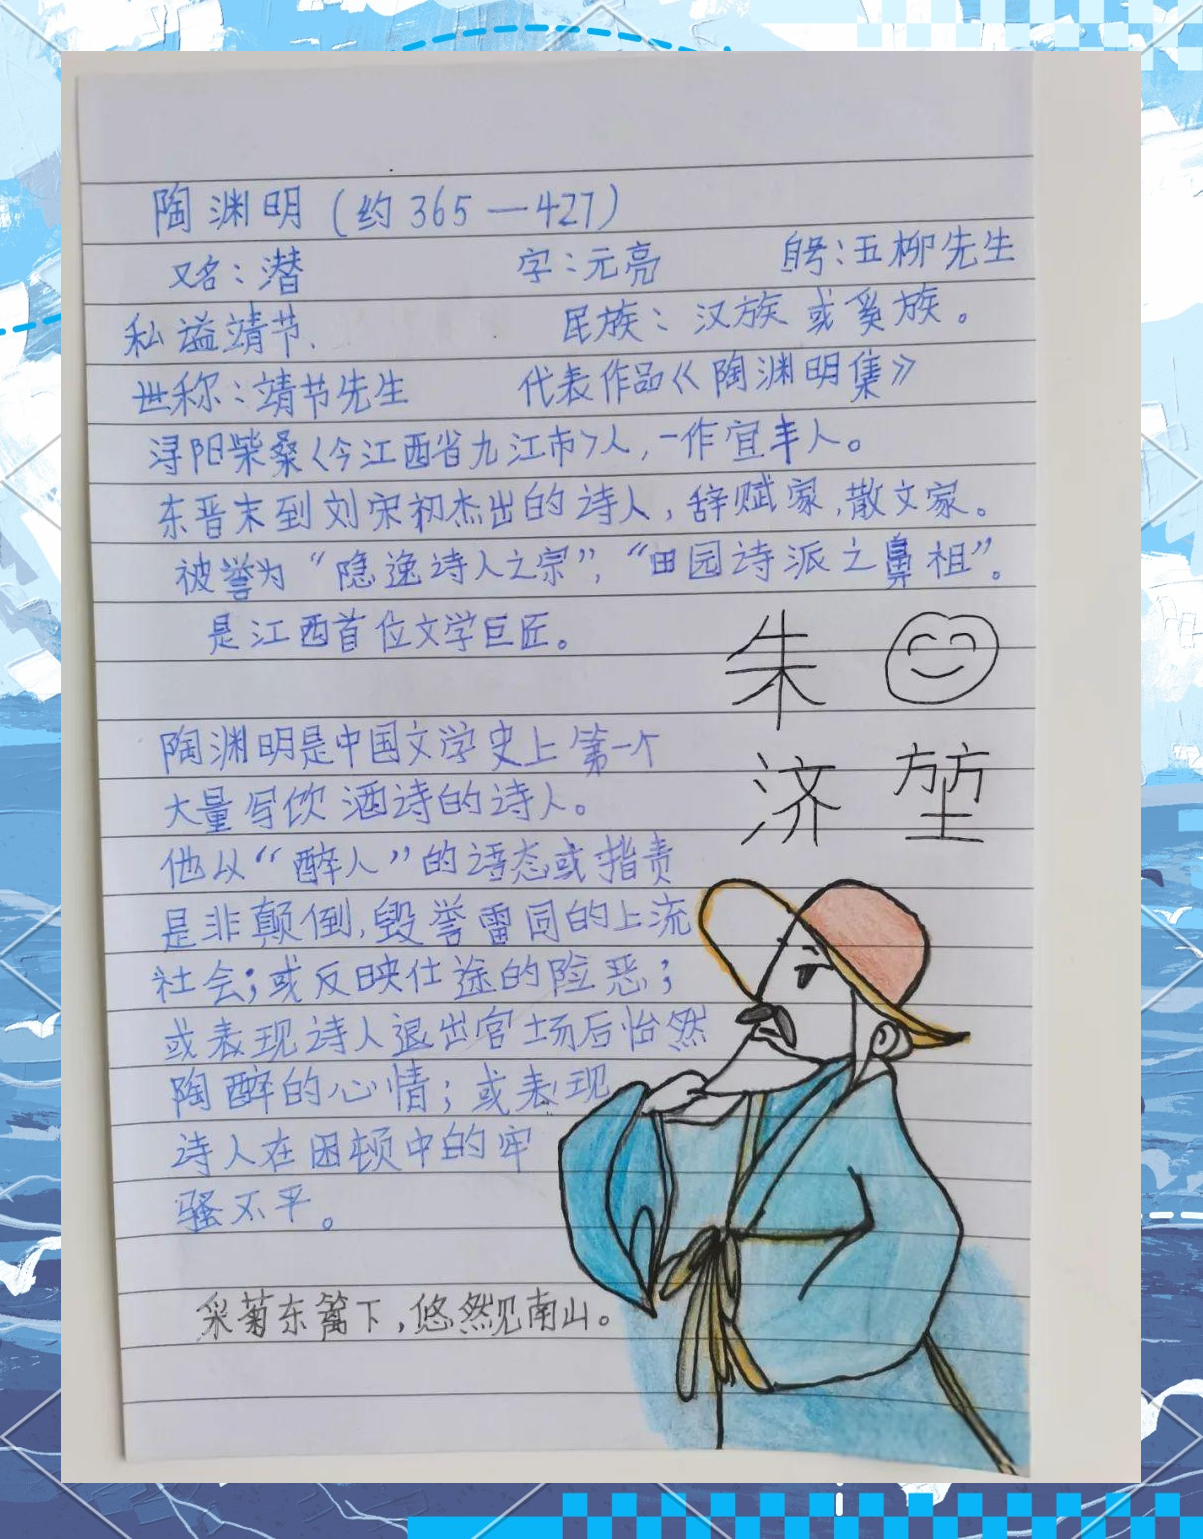 陶渊明(约365—427)
又名:潜 字:元亮 自号:五柳先生
私谥靖节. 民族:汉族或奚族。
世称:靖节先生 代表作品《陶渊明集》
浔阳柴桑<今江西省九江市>人,一作宜丰人。
东晋末到刘宋初杰出的诗人,辞赋家,散文家。
被誉为“隐逸诗人之宗”,“田园诗派之鼻祖”。
是江西首位文学巨匠。
朱
济 堃
陶渊明是中国文学史上第一个
大量写饮酒诗的诗人。
他以“醉人”的语态或指责
是非颠倒,毁誉雷同的上流
社会;或反映仕途的险恶;
或表现诗人退出官场后怡然
陶醉的心情;或表现
诗人在困顿中的牢
骚不平。
采菊东篱下,悠然见南山。